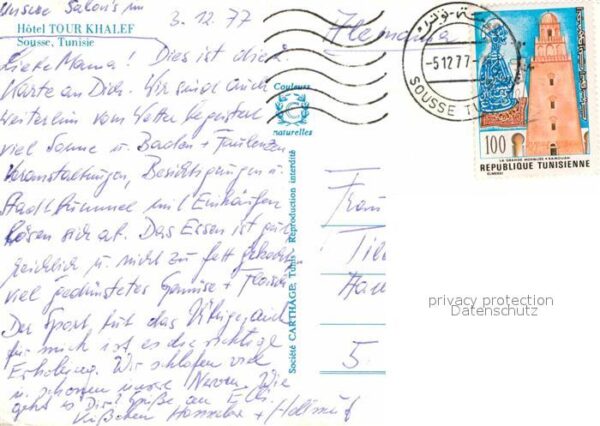 Unsere Salons im
3.12.77
Hôtel TOUR KHALEF
Sousse, Tunisie
Liebe Mama! Dies ist die
Karte an Dich. Wir sind auch
weiterhin vom Wetter begeistert
viel Sonne u. Baden + Faulenzen
Veranstaltungen, Besichtigungen u.
Stadtbummel mit Einkäufen
lösen sich ab. Das Essen ist gut
reichlich u. nicht zu fett gekocht
viel gedünstetes Gemüse + Fleisch
Der Sport tut das Übrige, auch
für mich ist es die richtige
Erholung. Wir schlafen viel
u. schonen unsere Nerven. Wie
geht es Dir? Grüße an Elli.
Küßchen Hannelore + Helmut
Couleurs
naturelles
Société CARTHAGE, Tunis Reproduction interdite
-5 12 77
SOUSSE
100
LA GRANDE MOSQUEE KAIROUAN
REPUBLIQUE TUNISIENNE
Frau
5.
privacy protection
Datenschutz